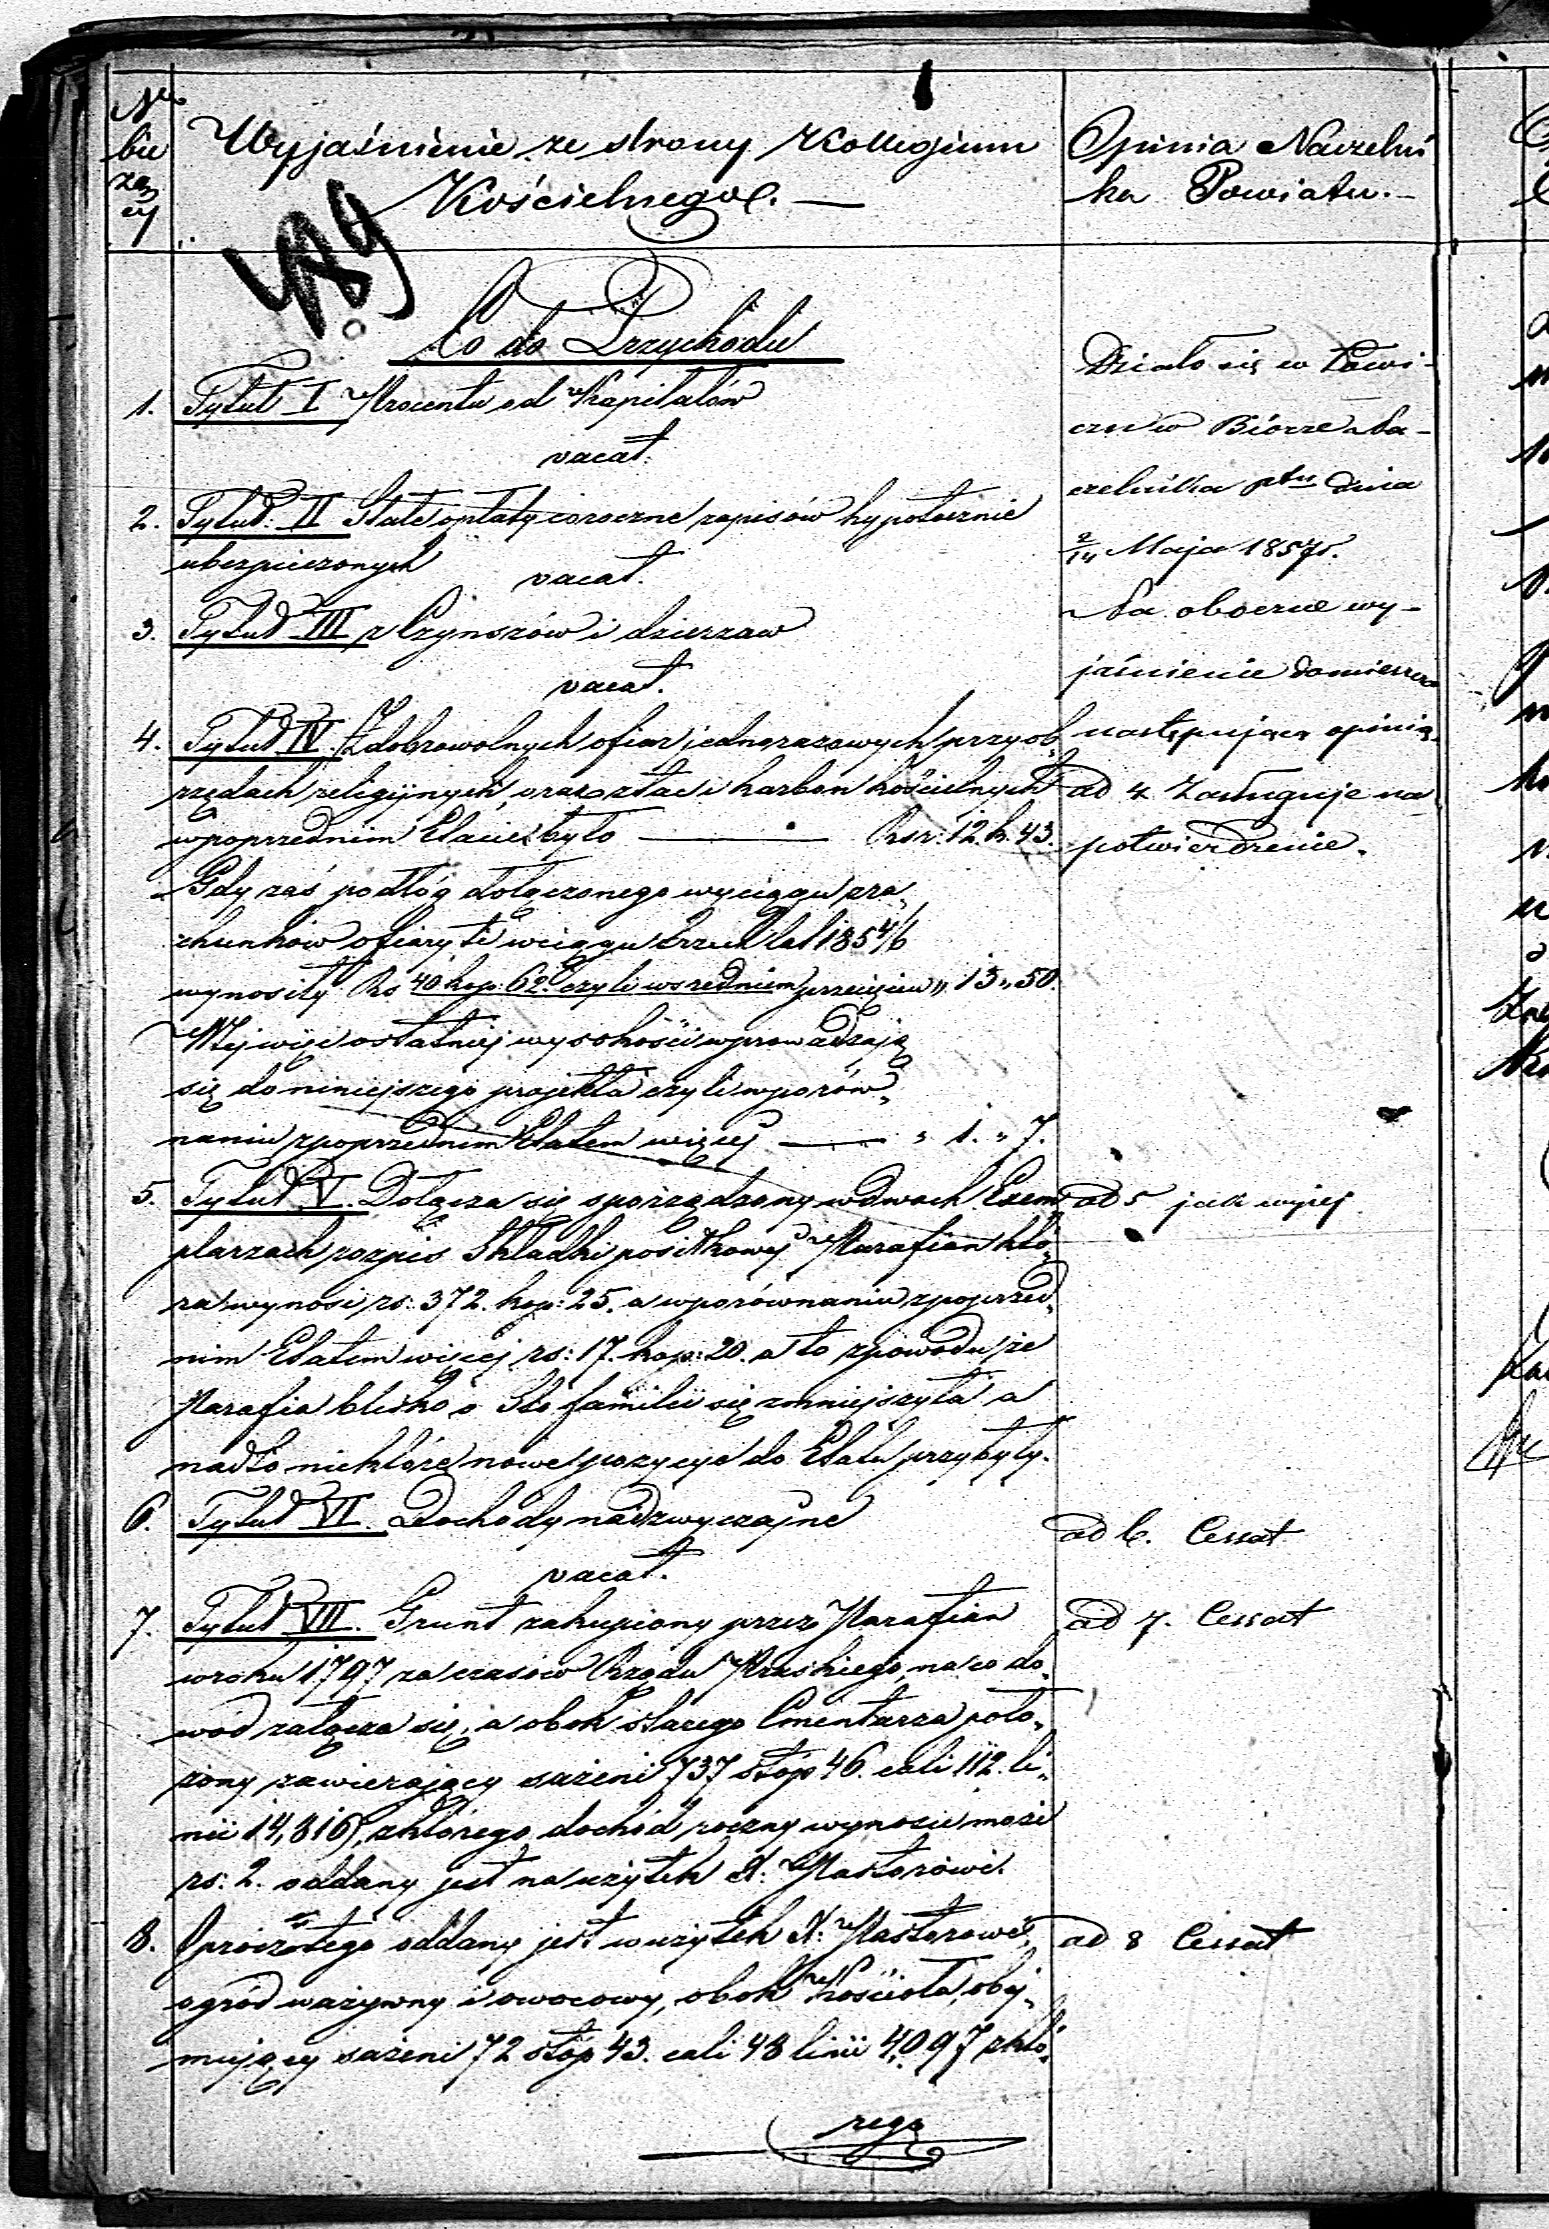 Nr bie żą cy
Wyjaśnienie ze strony Kollegium
Kościelnego. —
Opinia Naczelni
ka Powiatu. —
489
Co do Przychodu
1. Tytuł I Procenta od Kapitałów
vacat.
2. Tytuł: II Stałe opłaty coroczne zapisów hypotecznie
ubezpieczonych
vacat.
3. Tytuł III z Czynszów i dzierzaw
vacat.
4. Tytuł IV. Z dobrowolnych ofiar jednorazowych przy ob„
rzędach religijnych, oraz z tac i karbon kościelnych
w poprzednim Etacie było — Rsr: 12. k. 43.
Gdy zaś podłóg dołączonego wyciągu z ra„
chunków ofiary te w ciągu trzech lat 185 4/6
wynosiły Rs 40 kop: 62. czyli w srednim przecięciu „ 13 „ 50.
W tej więc ostatniej wysokości wprowadzają
się do niniejszego projektu czyli w porów„
naniu z poprzednim Etatem więcej — „ 1. „ 7.
5. Tytuł V. Dołącza się sporządzony w dwóch Exem„
plarzach rozpis Składki posiłkowej Parafian któ„
ra wynosi rs: 372. kop: 25. a w porównaniu z poprzed„
nim Etatem więcej rs: 17. kop: 20. a to z powodu że
Parafia blisko o Sto familii się zmniejszyła a
nadto niektóre nowe pozycye do Etatu przybyły.
6. Tytuł VI. Dochody nadzwyczajne
vacat.
7. Tytuł VII. Grunt zakupiony przez Parafian
w roku 1797 za czasów Rządu Pruskiego, na co do„
wód załącza się, a obok starego Cmentarza poło„
żony zawierający sażeni 737 stóp 46. cali 112. li„
nii 14,816, z którego dochód roczny wynosić może
rs: 2. oddany jest na użytek X: Pastorowi.
8. Oprócz tego oddany jest w użytek X: Pastorowi,
ogród warzywny i owocowy, obok Kościoła, obej„
mujący sażeni 72 stóp 43. cali 48 linii 4,097 z któ„
rego
Działo się w Łowi-
czu w Biórze Na-
czelnika ptu dnia
2/14 Maja 1857 r.
Na obocne wy-
jaśnienie zamieszcza
następującą opinią.
ad 4 Zasługuje na
potwierdzenie.
ad 5 jak wyżej
ad 6. Cessat
ad 7. Cessat
ad 8 Cessat